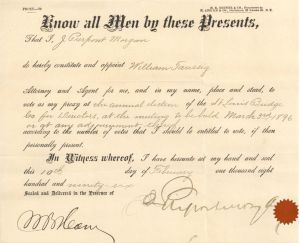 Know all Men by these Presents,
That I, J. Pierpont Morgan
do hereby constitute and appoint William Taussig
Attorney and Agent for me, and in my name, place and stead, to
vote as my proxy at the annual election of the St. Louis Bridge
Co. for directors, at the meeting to be held March 2nd 1896
or at any adjournment
according to the number of votes that I should be entitled to vote, if then
personally present.
In Witness whereof, I have hereunto set my hand and seal
this 10th day of February one thousand eight
hundred and ninety-six
Sealed and Delivered in the Presence of
J. Pierpont Morgan